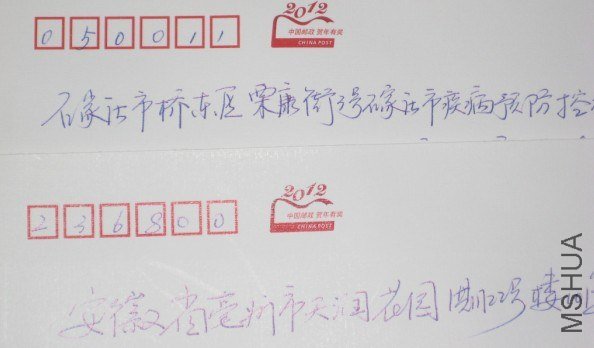 050011
2012
中国邮政 贺年有奖
CHINA POST
石家庄市桥东区栗康街3号石家庄市疾病预防控
236800
2012
中国邮政 贺年有奖
CHINA POST
安徽省亳州市天润花园 号楼
MSHUA